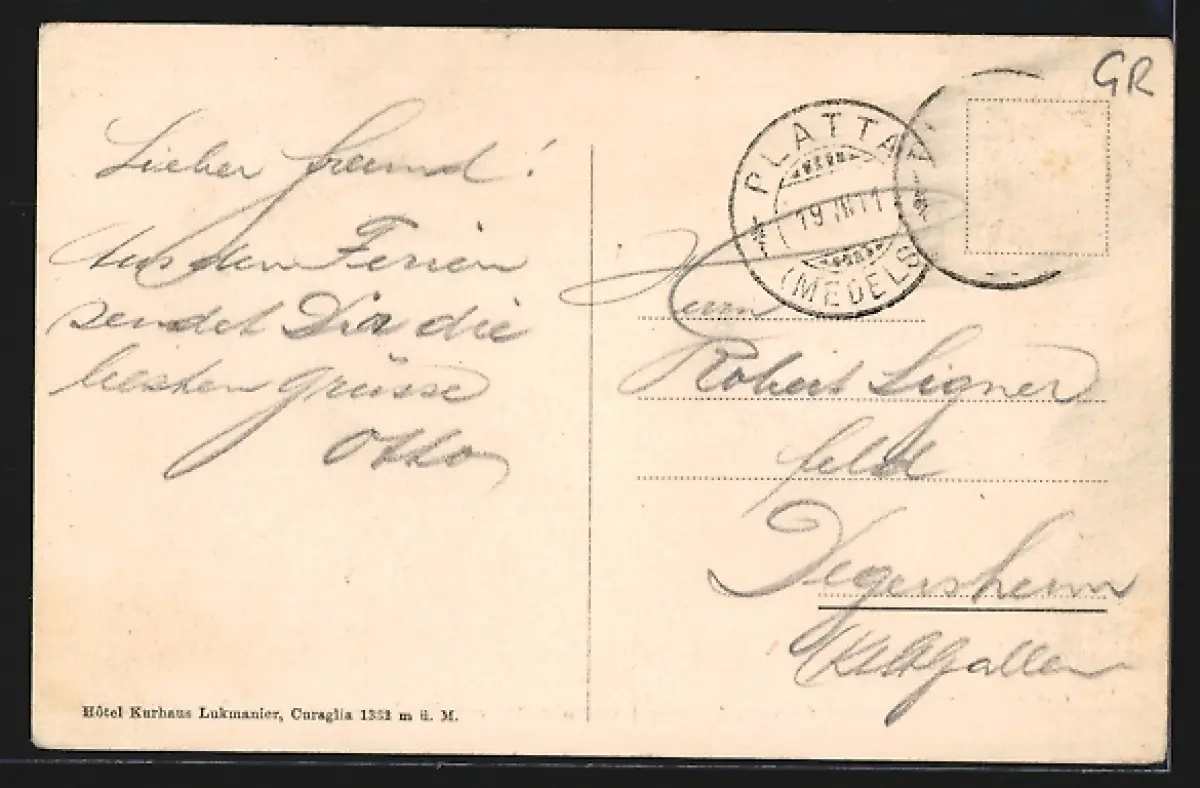 Lieber Freund!
Aus den Ferien
sendet Dir die
besten Grüsse
Otto
Hôtel Kurhaus Lukmanier, Curaglia 1332 m ü. M.
GR
PLATTA
19 VII 11
(MEDELS
Herrn
Robert Signer
Feld
Degersheim
Kt. St. Gallen